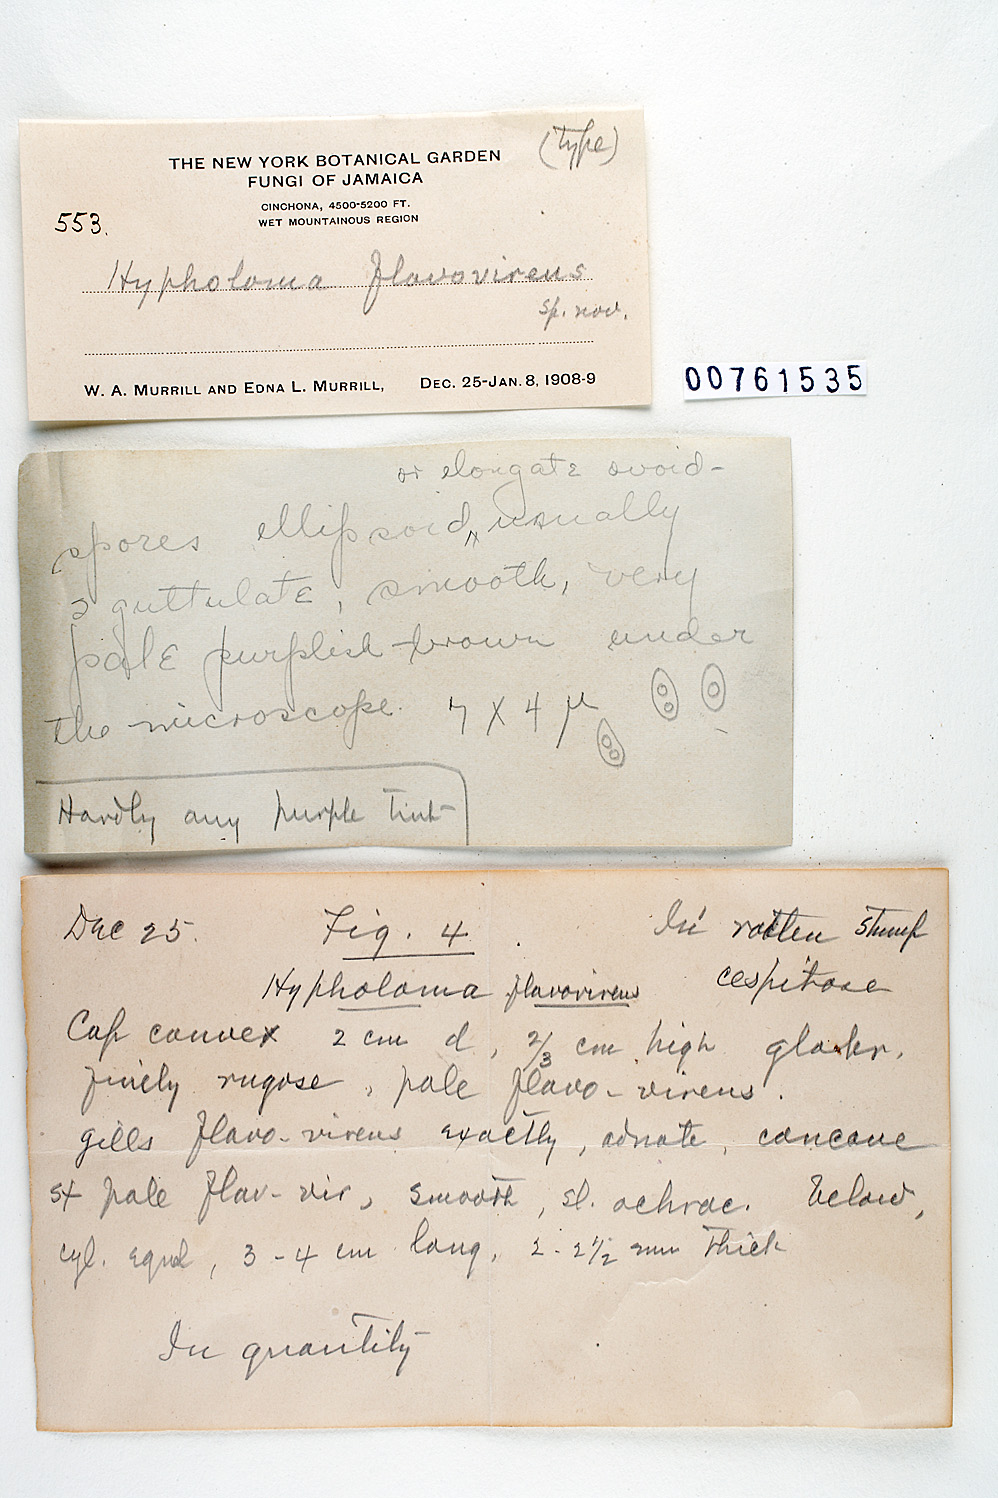 (type)
THE NEW YORK BOTANICAL GARDEN
FUNGI OF JAMAICA
CINCHONA, 4500-5200 FT.
WET MOUNTAINOUS REGION
553.
Hypholoma flavovirens
sp. nov.
W. A. MURRILL AND EDNA L. MURRILL, DEC. 25-JAN. 8, 1908-9
00761535
or elongate ovoid-
spores ellipsoid, usually
2 guttulate, smooth, very
pale purplish-brown under
the microscope. 7 X 4 µ
Hardly any purple tint
Dec 25. Fig. 4 In rotten stump
Hypholoma flavovirens cespitose
Cap convex 2 cm d, 2/3 cm high glabr.
finely rugose, pale flavo-virens.
gills flavo-virens exactly, adnate, concave
st pale flav-vir, smooth, sl. ochrac. below,
cyl. equal, 3-4 cm long, 2-2 1/2 mm thick
In quantity